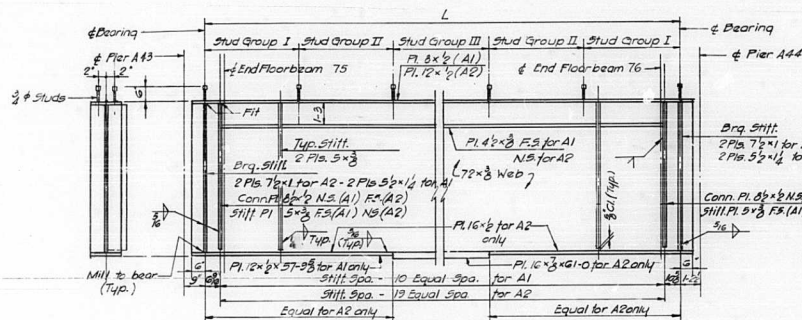 L
℄ Bearing
℄ Bearing
℄ Pier A43
Stud Group I
Stud Group II
Stud Group III
Stud Group II
Stud Group I
℄ Pier A44
2" 2"
℄ End Floorbeam 75
Pl. 8×½ (A1)
Pl. 12×½ (A2)
℄ End Floorbeam 76
¾ ϕ Studs
6"
Fit
1-3
Typ. Stiff.
2 Pls. 5×⅜
Pl. 4½×⅜ F.S. for A1
N.S. for A2
72×⅜ Web
Brg. Stiff.
2 Pls. 7½×1 for A2 - 2 Pls 5½×1¼ for A1
Conn. Pl 8½×½ N.S.(A1) F.S.(A2)
Stiff. Pl 5×⅜ F.S.(A1) N.S(A2)
Brg. Stiff.
2 Pls. 7½×1 for A
2 Pls. 5½×1¼ for
Conn. Pl. 8½×½ N.S
Stiff. Pl. 5×⅜ F.S.(A1)
5/16
Typ.
5/16
(Typ.)
Pl. 16×½ for A2
only
Cl. (Typ.)
5/16
Mill to bear
(Typ.)
Pl. 16×⅞×61-0 for A2 only
6"
9"
6"
Stiff. Spa. - 10 Equal Spa. for A1
Stiff. Spa. - 19 Equal Spa. for A2
Equal for A2 only
Equal for A2 only